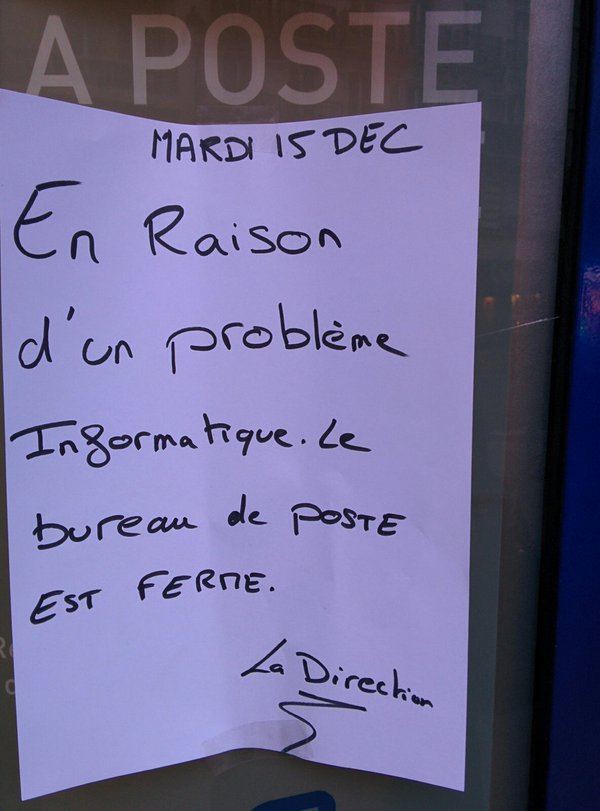 A POSTE
MARDI 15 DEC
En Raison
d'un problème
Informatique. Le
bureau de POSTE
EST FERME.
La Direction